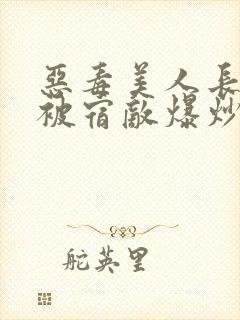 惡毒美人長
被宿敵爆炒
舵英里